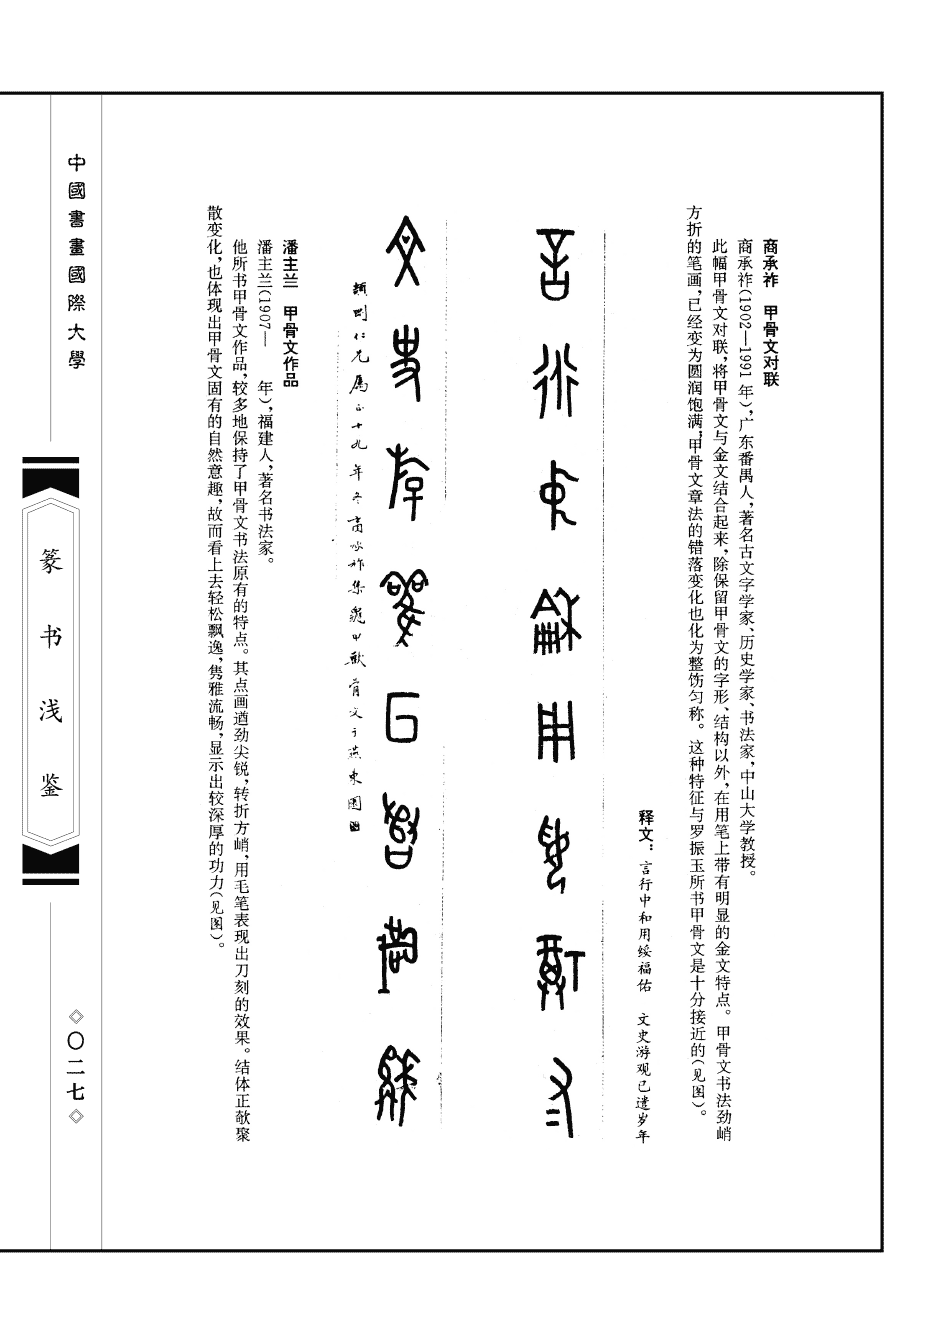 商承祚 甲骨文对联
商承祚(1902—1991 年),广东番禺人,著名古文字学家、历史学家、书法家,中山大学教授。
此幅甲骨文对联,将甲骨文与金文结合起来,除保留甲骨文的字形、结构以外,在用笔上带有明显的金文特点。甲骨文书法劲峭
方折的笔画,已经变为圆润饱满,甲骨文章法的错落变化也化为整饬匀称。这种特征与罗振玉所书甲骨文是十分接近的(见图)。
释文：言行中和用绥福佑 文史游观已遣岁年
言行中和用绥福佑
文史游观已遣岁年
潘主兰 甲骨文作品
潘主兰(1907— 年),福建人,著名书法家。
他所书甲骨文作品,较多地保持了甲骨文书法原有的特点。其点画遒劲尖锐,转折方峭,用毛笔表现出刀刻的效果。结体正欹聚
散变化,也体现出甲骨文固有的自然意趣,故而看上去轻松飘逸,隽雅流畅,显示出较深厚的功力(见图)。
中國書畫國際大學
篆书浅鉴
◇〇二七◇